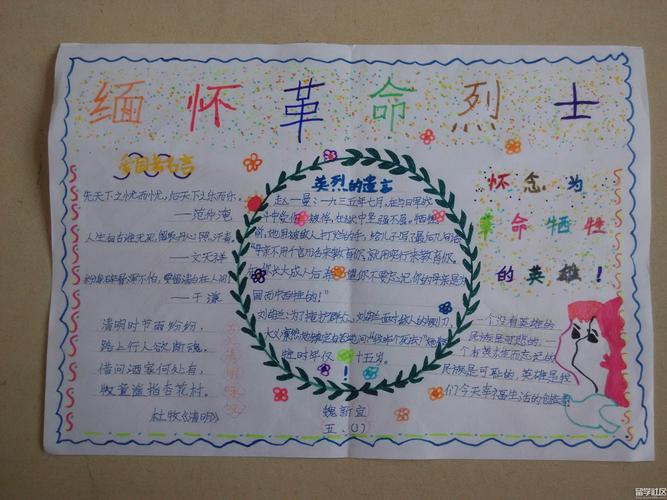 缅怀革命烈士
爱国名言
先天下之忧而忧，后天下之乐而乐。
——范仲淹
人生自古谁无死，留取丹心照汗青。
——文天祥
粉身碎骨浑不怕，要留清白在人间！
——于谦
清明时节雨纷纷，
路上行人欲断魂。
借问酒家何处有，
牧童遥指杏花村。
杜牧《清明》
英烈的遗言
赵一曼：一九三五年七月，在与日军战
斗中受伤被俘，在狱中坚强不屈。牺牲
前，她用被敌人打烂的手，给儿子写了最后几句话
"母亲不用千言万语来教育你，就用实行来教育你。
在你长大成人后，希望你不要忘记你的母亲是为
国而牺牲的！"
刘胡兰：为了掩护群众，刘胡兰面对敌人的铡刀，
大义凛然
牲时年仅十五岁。
！
魏新宜
五．(1)
怀念为
革命牺牲
的英雄！
一个没有英雄的
民族是可悲的，一
个有英雄而忘记的
民族是可耻的，英雄是我
们今天幸福生活的创造者
留学社区